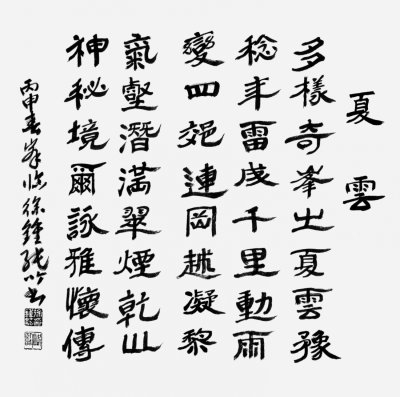 夏雲
多樣奇峯出夏雲豫
稔年雷成千里動雨
變四郊連岡越凝黎
氣壑潛满翠煙乾山
神秘境爾詠雅懷傳
丙申春峯臨徐鍾